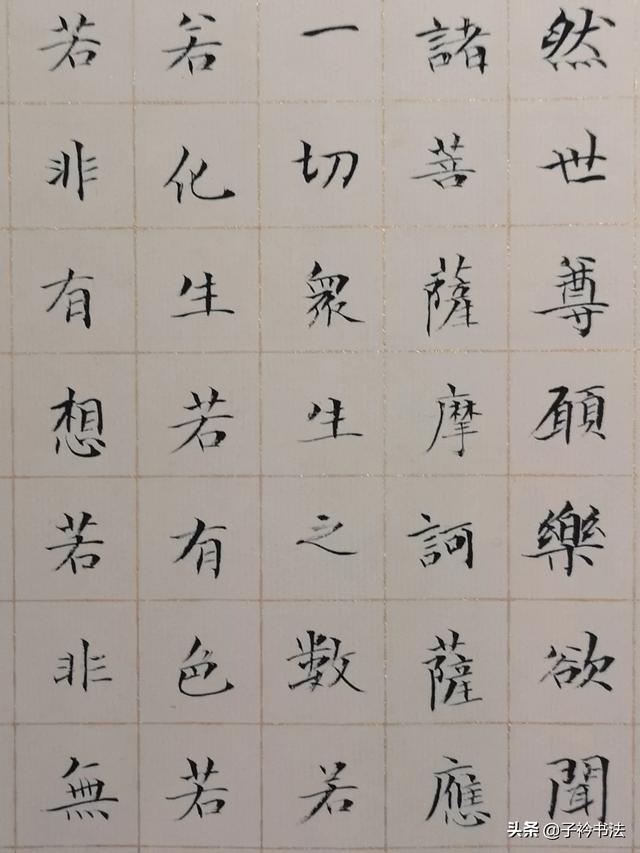 然世尊願樂欲聞
諸菩薩摩訶薩應
一切衆生之數若
若化生若有色若
若非有想若非無
头条 @子衿书法